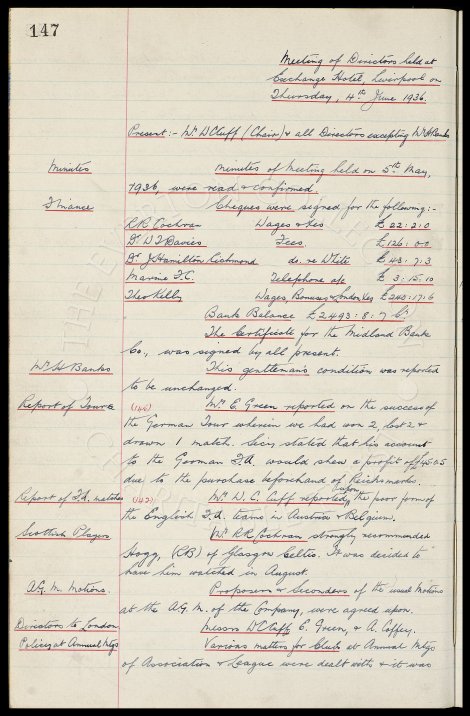 147
Meeting of Directors held at
Exchange Hotel, Liverpool on
Thursday, 4th June 1936.
Present:- Mr W Cuff (Chair) & all Directors excepting Mr H Banks
Minutes Minutes of Meeting held on 5th May,
1936, were read & confirmed.
Finance Cheques were signed for the following:-
RR Cochran Wages & Xes £ 22:2:0
Dr. W J Davies Fees, £126:0:0
Dr J Hamilton Richmond do. re White £ 43:7:3
Marine F.C. Telephone a/c £ 3:15:10
Theo Kelly Wages, Bonuses & London Xes £243:17:6
Bank Balance £2493:8:7 Cr.
The Certificate for the Midland Bank
Co., was signed by all present.
Mr H Banks This gentleman's condition was reported
to be unchanged.
Report of Tour (146) Mr. E. Green reported on the success of
the German Tour wherein we had won 2, lost 2 &
drawn 1 match. Secy stated that his account
to the German F.A. would shew a profit of
due to the purchase beforehand of Reichsmarks.
Report of F.A. matches (142) Mr W. C. Cuff reported upon the poor form of
the English F.A. teams in Austria & Belgium.
Scottish Player Mr RR Cochran strongly recommended
Hogg, (RB) of Glasgow Celtic. It was decided to
have him watched in August.
A.G.M. Motions. Proposers & Seconders of the usual Motions
at the A.G.M. of the Company, were agreed upon.
Directors to London Messrs W Cuff, E. Green, & A. Coffey.
Policy at Annual Mtgs Various matters for Club at Annual Mtgs
of Association & League were dealt with & it was